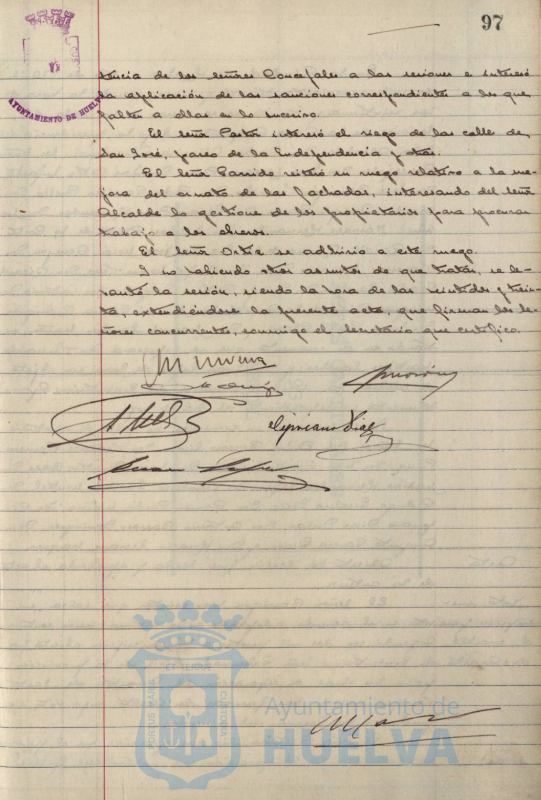 97
AYUNTAMIENTO DE HUELVA
tencia de los señores Concejales a las sesiones e interesó
la aplicación de las sanciones correspondientes a los que
falten a ellas en lo sucesivo.
El señor Pastor interesó el riego de las calle de
San José, paseo de la Independencia y otras.
El señor Garrido reiteró su ruego relativo a la me-
jora del ornato de las fachadas, interesando del señor
Alcalde lo gestione de los propietarios para procurar
trabajo a los obreros.
El señor Ortiz se adhirió a este ruego.
Y no habiendo otros asuntos de que tratar, se le-
vantó la sesión, siendo la hora de las veintidos y trein-
ta, extendiéndose la presente acta, que firman los se-
ñores concurrentes, conmigo el Secretario que certifico.
Cipriano Diaz
PORTUS MARIS ET TERRAE CUSTODIA
Ayuntamiento de
HUELVA